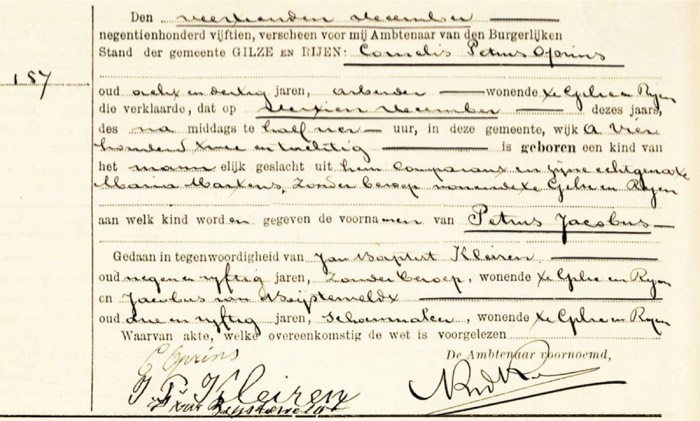 Den veertienden December
negentienhonderd vijftien, verscheen voor mij Ambtenaar van den Burgerlijken
Stand der gemeente GILZE EN RIJEN: Cornelis Petrus Oprins
187
oud acht en dertig jaren, arbeider wonende te Gilze en Rijen
die verklaarde, dat op dertien December dezes jaars,
des na middags te half vier uur, in deze gemeente, wijk A vier
honderd twee en tachtig is geboren een kind van
het mann elijk geslacht uit hem Comparant en zijne echtgenoote
Maria Martens, zonder beroep wonende te Gilze en Rijen
aan welk kind worden gegeven de voornamen van Petrus Jacobus
Gedaan in tegenwoordigheid van Jan Baptist Kleiren,
oud negen en vyftig jaren, zonder beroep, wonende te Gilze en Rijen
en Jacobus van Beijsterveldt
oud drie en vyftig jaren, schoenmaker, wonende te Gilze en Rijen
Waarvan akte, welke overeenkomstig de wet is voorgelezen
De Ambtenaar voornoemd,
C Oprins
J. B. Kleiren
J van Beijsterveldt